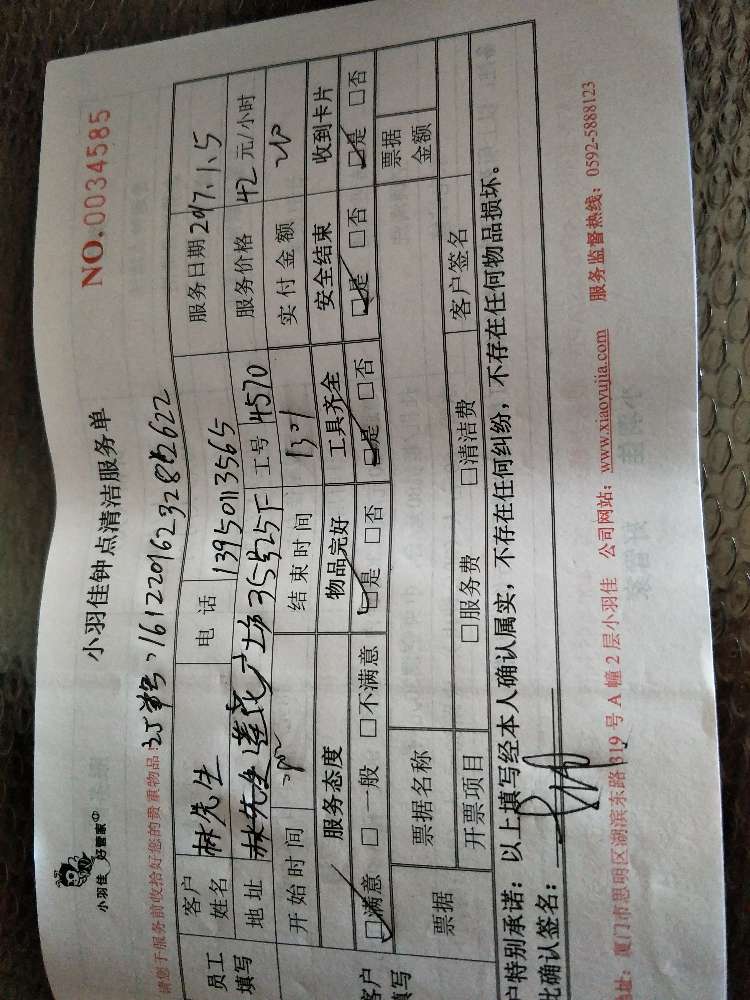 小羽佳 好管家
小羽佳钟点清洁服务单
NO.0034585
请您于服务前收拾好您的贵重物品!
员工填写
客户姓名 林先生 电话 13950113565 服务日期 2017.1.5
地址 莲花广场 工号 4570 服务价格 42 元/小时
开始时间 结束时间 实付金额
客户填写
服务态度 物品完好 工具齐全 安全结束 收到卡片
□满意 □一般 □不满意 □是 □否 □是 □否 □是 □否 □是 □否
票据 票据名称 票据金额
开票项目 □服务费 □清洁费 客户签名
户特别承诺:以上填写经本人确认属实,不存在任何纠纷,不存在任何物品损坏。
此确认签名:
址:厦门市思明区湖滨东路 319 号 A 幢 2 层小羽佳 公司网站:www.xiaoyujia.com 服务监督热线:0592-5888123